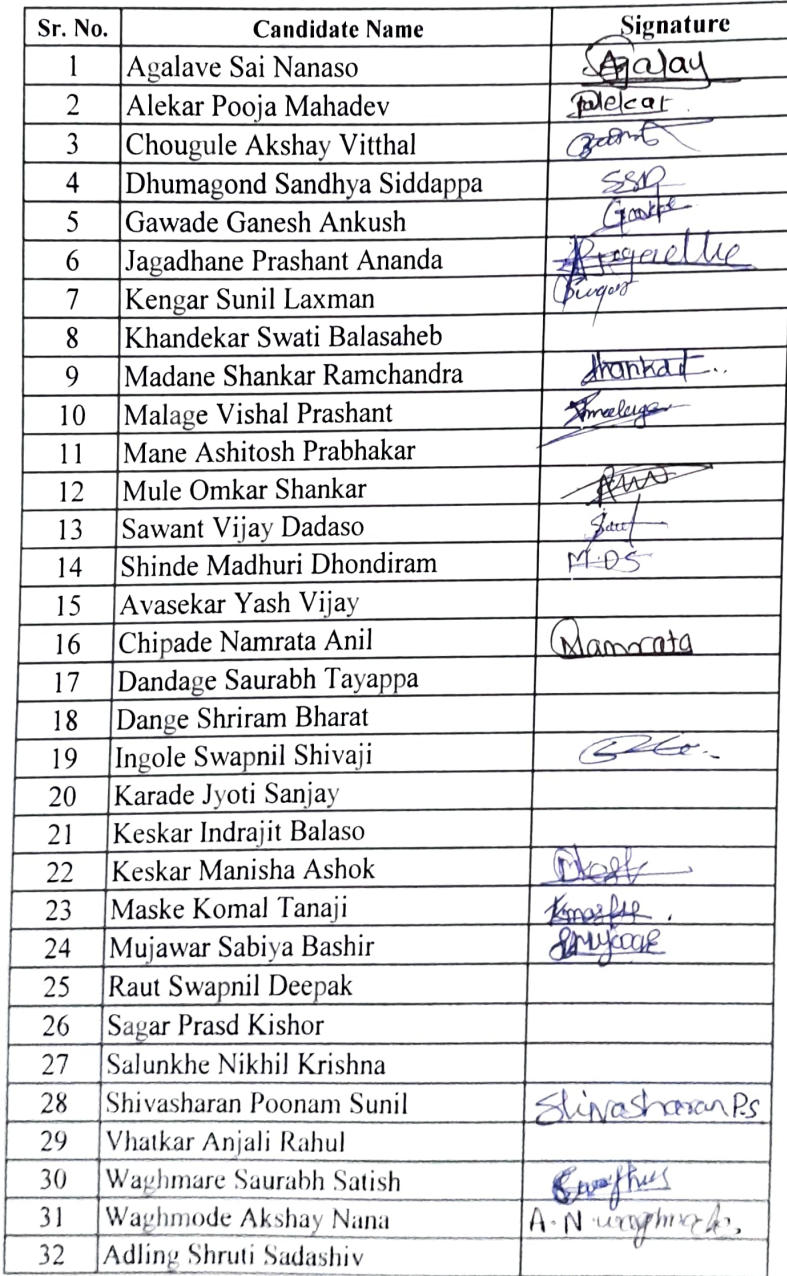 Sr. No. Candidate Name Signature
1 Agalave Sai Nanaso Agalav
2 Alekar Pooja Mahadev
3 Chougule Akshay Vitthal
4 Dhumagond Sandhya Siddappa SSD
5 Gawade Ganesh Ankush
6 Jagadhane Prashant Ananda
7 Kengar Sunil Laxman
8 Khandekar Swati Balasaheb
9 Madane Shankar Ramchandra
10 Malage Vishal Prashant
11 Mane Ashitosh Prabhakar
12 Mule Omkar Shankar
13 Sawant Vijay Dadaso
14 Shinde Madhuri Dhondiram M.D.S
15 Avasekar Yash Vijay
16 Chipade Namrata Anil Namrata
17 Dandage Saurabh Tayappa
18 Dange Shriram Bharat
19 Ingole Swapnil Shivaji
20 Karade Jyoti Sanjay
21 Keskar Indrajit Balaso
22 Keskar Manisha Ashok
23 Maske Komal Tanaji
24 Mujawar Sabiya Bashir
25 Raut Swapnil Deepak
26 Sagar Prasd Kishor
27 Salunkhe Nikhil Krishna
28 Shivasharan Poonam Sunil Shivasharan P.S
29 Vhatkar Anjali Rahul
30 Waghmare Saurabh Satish
31 Waghmode Akshay Nana A.N.
32 Adling Shruti Sadashiv